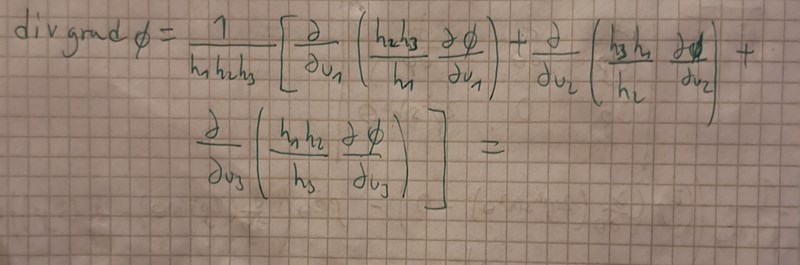 div grad ϕ = 1/(h₁h₂h₃) [ ∂/∂u₁ ( h₂h₃/h₁ ∂ϕ/∂u₁ ) + ∂/∂u₂ ( h₃h₁/h₂ ∂ϕ/∂u₂ ) +
∂/∂u₃ ( h₁h₂/h₃ ∂ϕ/∂u₃ ) ] =